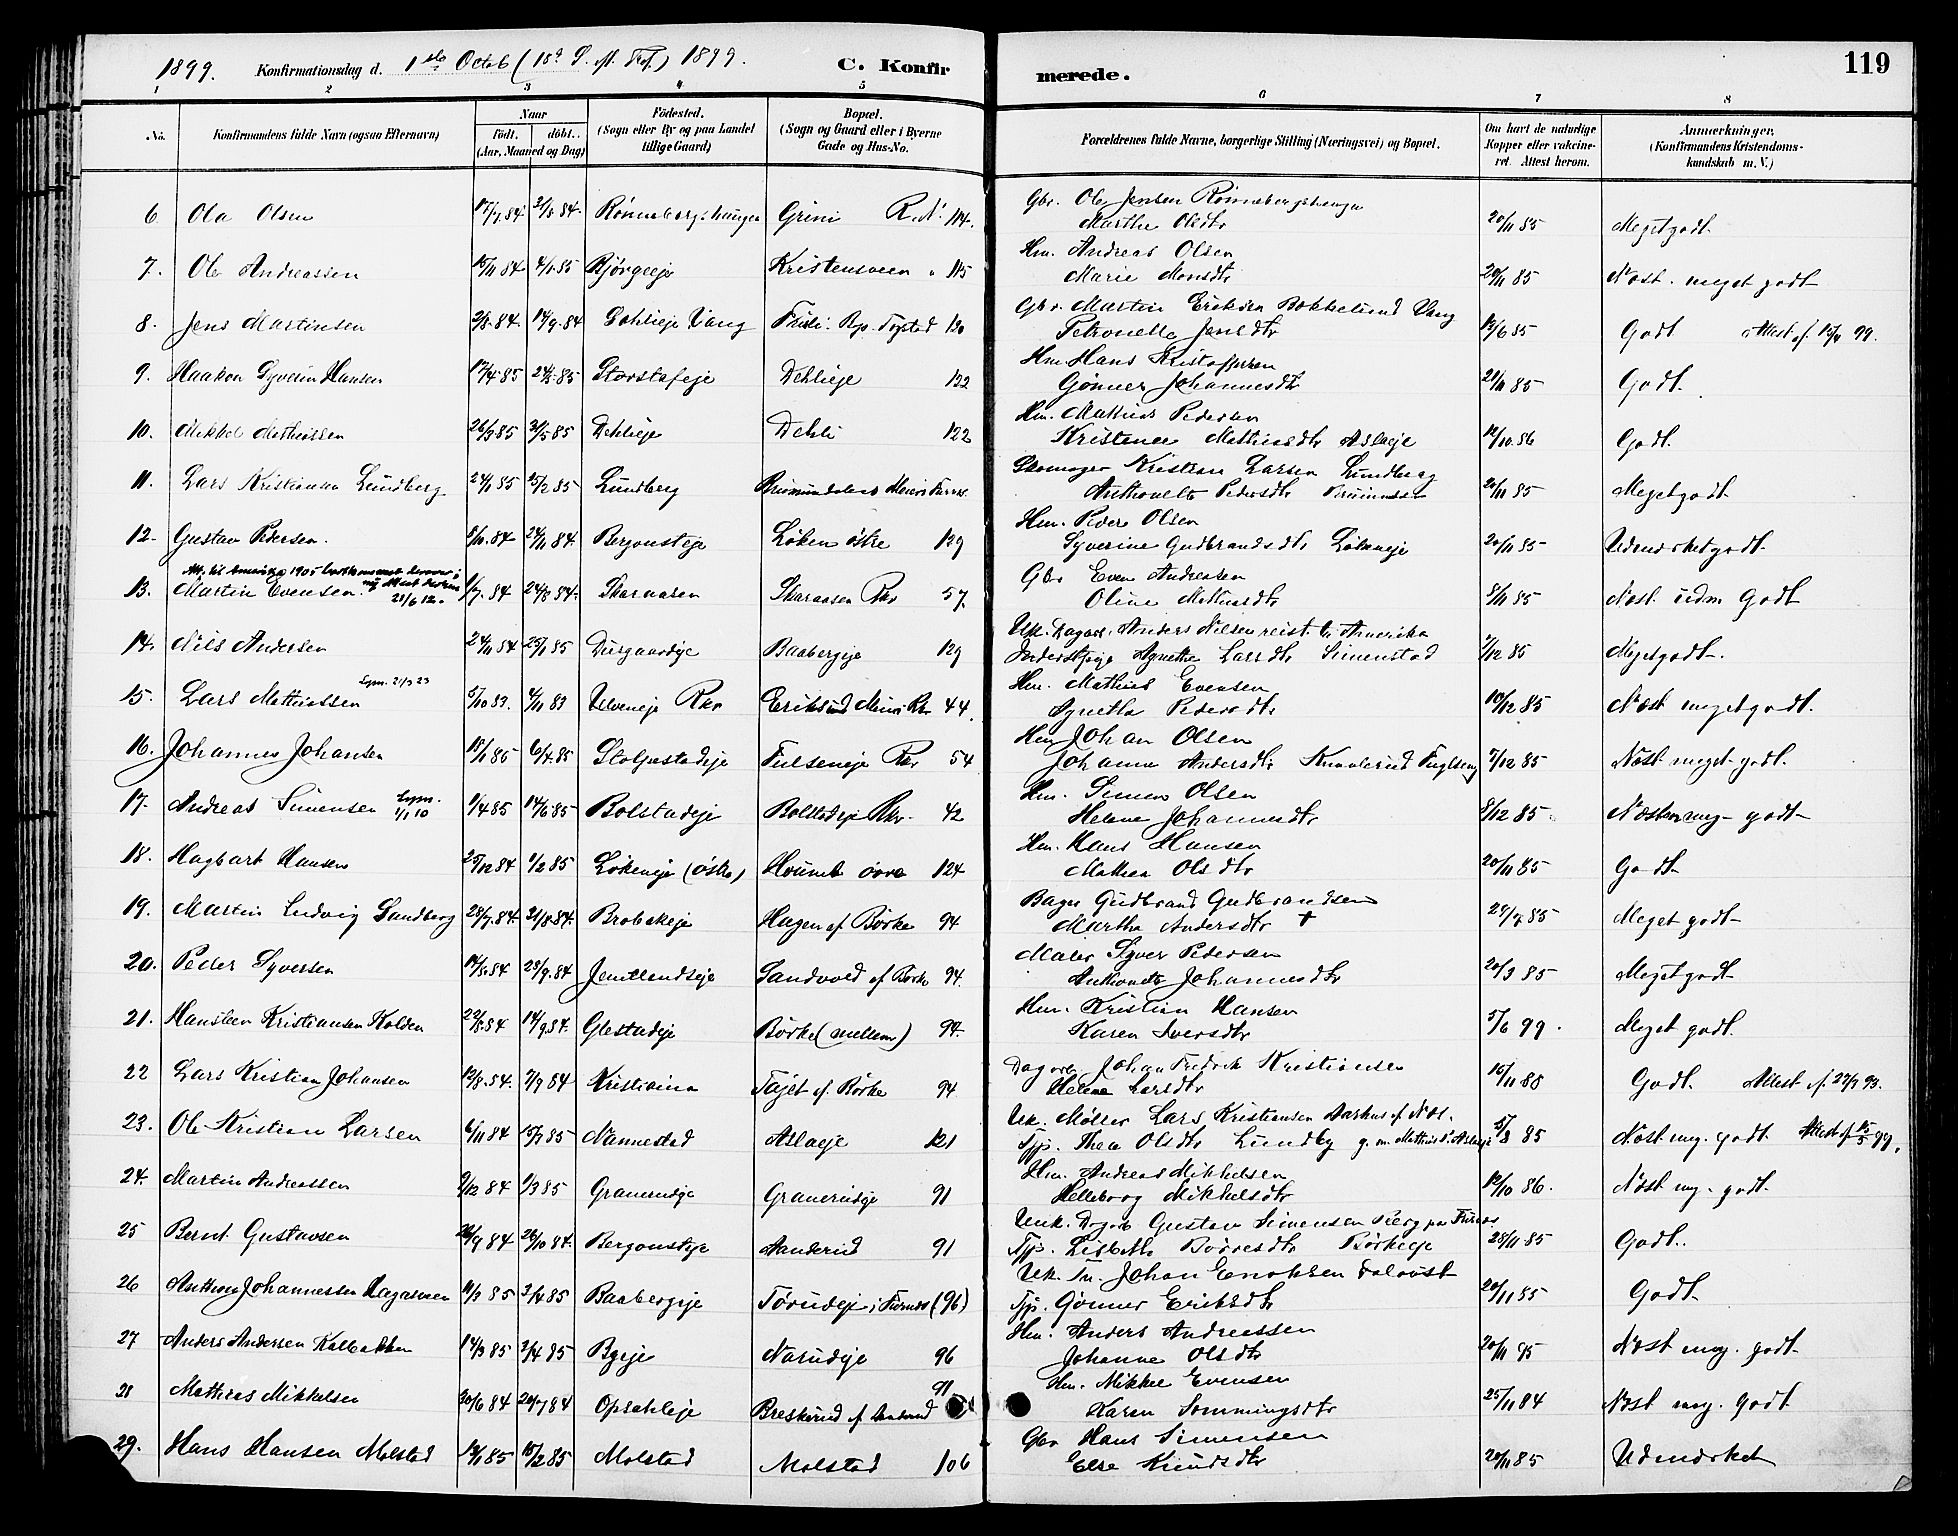 1899. Konfirmationsdag d. 1ste Octob (18de S. e. Tref.) 1899. C. Konfir merede. 119
1 2 3 4 5 6 7 8
No. Konfirmandens fulde Navn (ogsaa Efternavn) Naar födt. döbt. (Aar, Maaned og Dag) Födested. (Sogn eller By og paa Landet tillige Gaard) Bopæl. (Sogn og Gaard eller i Byerne Gade og Hus-No. Forældrenes fulde Navne, borgerlige Stilling (Næringsvei) og Bopæl. Om havt de naturlige Kopper eller vaccineret. Attest herom. Anmærkninger. (Konfirmandens Kristendomskundskab m. V.)
Gbr. Ole Jensen Rønnebergshaugen
6 Ola Olsen 17/7 84 31/8 84. Rønnebergshaugen Grini R.N. 114. Marthe Olsdtr 20/11 85 Megetgodt.
Hm. Andreas Olsen
7. Ole Andreassen 15/11 84 4/1 85 Bjørgeeje Kristensveen " 115 Marie Monsdtr 20/11 85 Næst. meget godt
Gbr. Martin Eriksen Bakkelund Vang
8. Jens Martinsen 2/8. 84. 14/9. 84 Vang 120 Petronelle Jensdtr 12/6 85 Godt Attest af 15/4 99.
Hm. Hans Kristoffersen
9. Haakon Syverin Hansen 17/4 85 24/5 85 Storstafeje Dehlieje 122 Gønner Johannesdtr 21/11 85 Godt.
Hm. Mathias Pedersen
10. Mikkel Mathiassen 26/3 85 31/5 85 Dehlieje Dehli 122 Kristence Mathiasdtr Aslaeje 12/10. 86 Godt.
Skomager Kristian Larsen Lundberg
11. Lars Kristiansen Lundberg 24/1 85 25/2 85 Lundberg Brumunddalens Meieri Furnes. Anthonette Pedersdtr 20/11 85 Megetgodt
Hm. Peder Olsen
12. Gustav Pedersen. 8/10. 84 24/11 84. Bergousteje Løken østre 129 Syverine Gudbrandsdtr Løkeneje 20/11 85 Udmærketgodt.
Att. til Amerika 1905 bortkommet derover; ny Attest 21/6 12.
Gbr Even Andreasen
13. Martin Evensen. 1/7. 84 24/8 84. Skaraasen Skaraasen Rkr 57. Oline Mathiasdtr 8/11 85 Næst. udm Godt
Uk. Dagarb. Anders Nilsen reist t. Amerika
14. Nils Andersen 24/11 84 25/1 85 Baabergeje 129 Inderstpige Agnethe Larsdtr Simenstad 1/12 85 Megetgodt.
Lysn. 21/3 23
Hm. Mathias Evensen
15. Lars Mathiassen 5/10 83. 4/11 83 Ulveneje Rkr Erikssund Meieri Rkr 44. Agnethe Pedersdtr 10/12 85 Næst megetgodt.
Hm Johan Olsen
16. Johannes Johansen 15/1 85 6/4. 85 Stolpestadeje Fulseneje Rkr 54 Johanne Andersdtr Fuglseng 7/12 85 Næst meget godt.
Hm. Simen Olsen
17. Andreas Simensen Lysn. 1/1 10 1/4 85 14/6 85 Bolstadeje Bolstadeje Rkr. 42 Helene Johannesdtr 8/12 85 Næsten meg. godt
Hm. Hans Hansen
18. Hagbart Hansen 25/12 84 1/2 85 Løkeneje (østre) øvre 124 Mathea Olsdtr 20/11 85 Godt
Bager Gudbrand Gudbrandsen
19. Martin Ludvig Sandberg 28/7. 84. 31/8. 84. Brobakeje Hagen af Børke 94 Marthe Andersdtr † 29/7. 85 Meget godt
Maler Syver Pedersen
20. Peder Syversen 14/8. 84 28/9. 84 Jemtlandseje Sandvold af Børke 94. Anthonette Johannesdtr 20/3 85 Megetgodt
Hm. Kristian Hansen
21. Hansteen Kristiansen Holden 22/8. 84 14/9 84. Glestadeje Børke (mellem) 94. Karen Iversdtr 5/6 99. Meget godt.
Dagarb Johan Fredrik Kristiansen
22 Lars Kristian Johansen 12/8. 84. 7/9 84 Kristiania Tajet af Børke 94 Helene Larsdtr 16/11 88 Godt. Attest af 27/7 93.
Uk. Møller Lars Kristiansen Aarhus af Næs.
23. Ole Kristian Larsen 6/11 84 15/3 85 Nannestad Aslaeje 121 Tjp. Thea Olsdtr Lundby g. m. Mathias Aslaeje 5/8 85 Næst meg. godt Attest af 15/5 99.
Hm. Andreas Mikkelsen
24. Martin Andreassen 9/12 84 1/3 85 Granerudeje Granerudeje 91 Helleborg Mikkelsdtr 12/10 86. Næst meg. godt.
Unk. Dagarb Gustav Simensen Berg paa Furnes
25 Bernt Gustavsen 20/9 84 26/10 84. Bergousteje Aanderud 91 Tjp. Lisbeth Børresdtr Børkeeje 28/11 85 Godt.
Uk. Tn. Johan Enoksen
26 Anthon Johannessen Hagasveen 11/2 85 3/4 85 Baabergeje Tørudeje i Furnes (96) Tjp. Gønner Eriksdtr 20/11 85 Godt
Hm. Anders Andreassen
27 Anders Andersen Kalbakken 14/3 85 3/4 85 Bgeje Narudeje 96 Johanne Olsdtr 20/11 85 Næst meg. godt
Hm. Mikkel Evensen
28 Mathias Mikkelsen 20/6 84 20/7 84 Opsahleje Breskerud af Aanderud 91 Karen Sommingsdtr 25/11 84 Næst meg. godt
Gbr Hans Simensen
29. Hans Hansen Molstad 12/1 85 15/2 85 Molstad Molstad 106 Else Knudsdtr 20/11 85 Udmærket